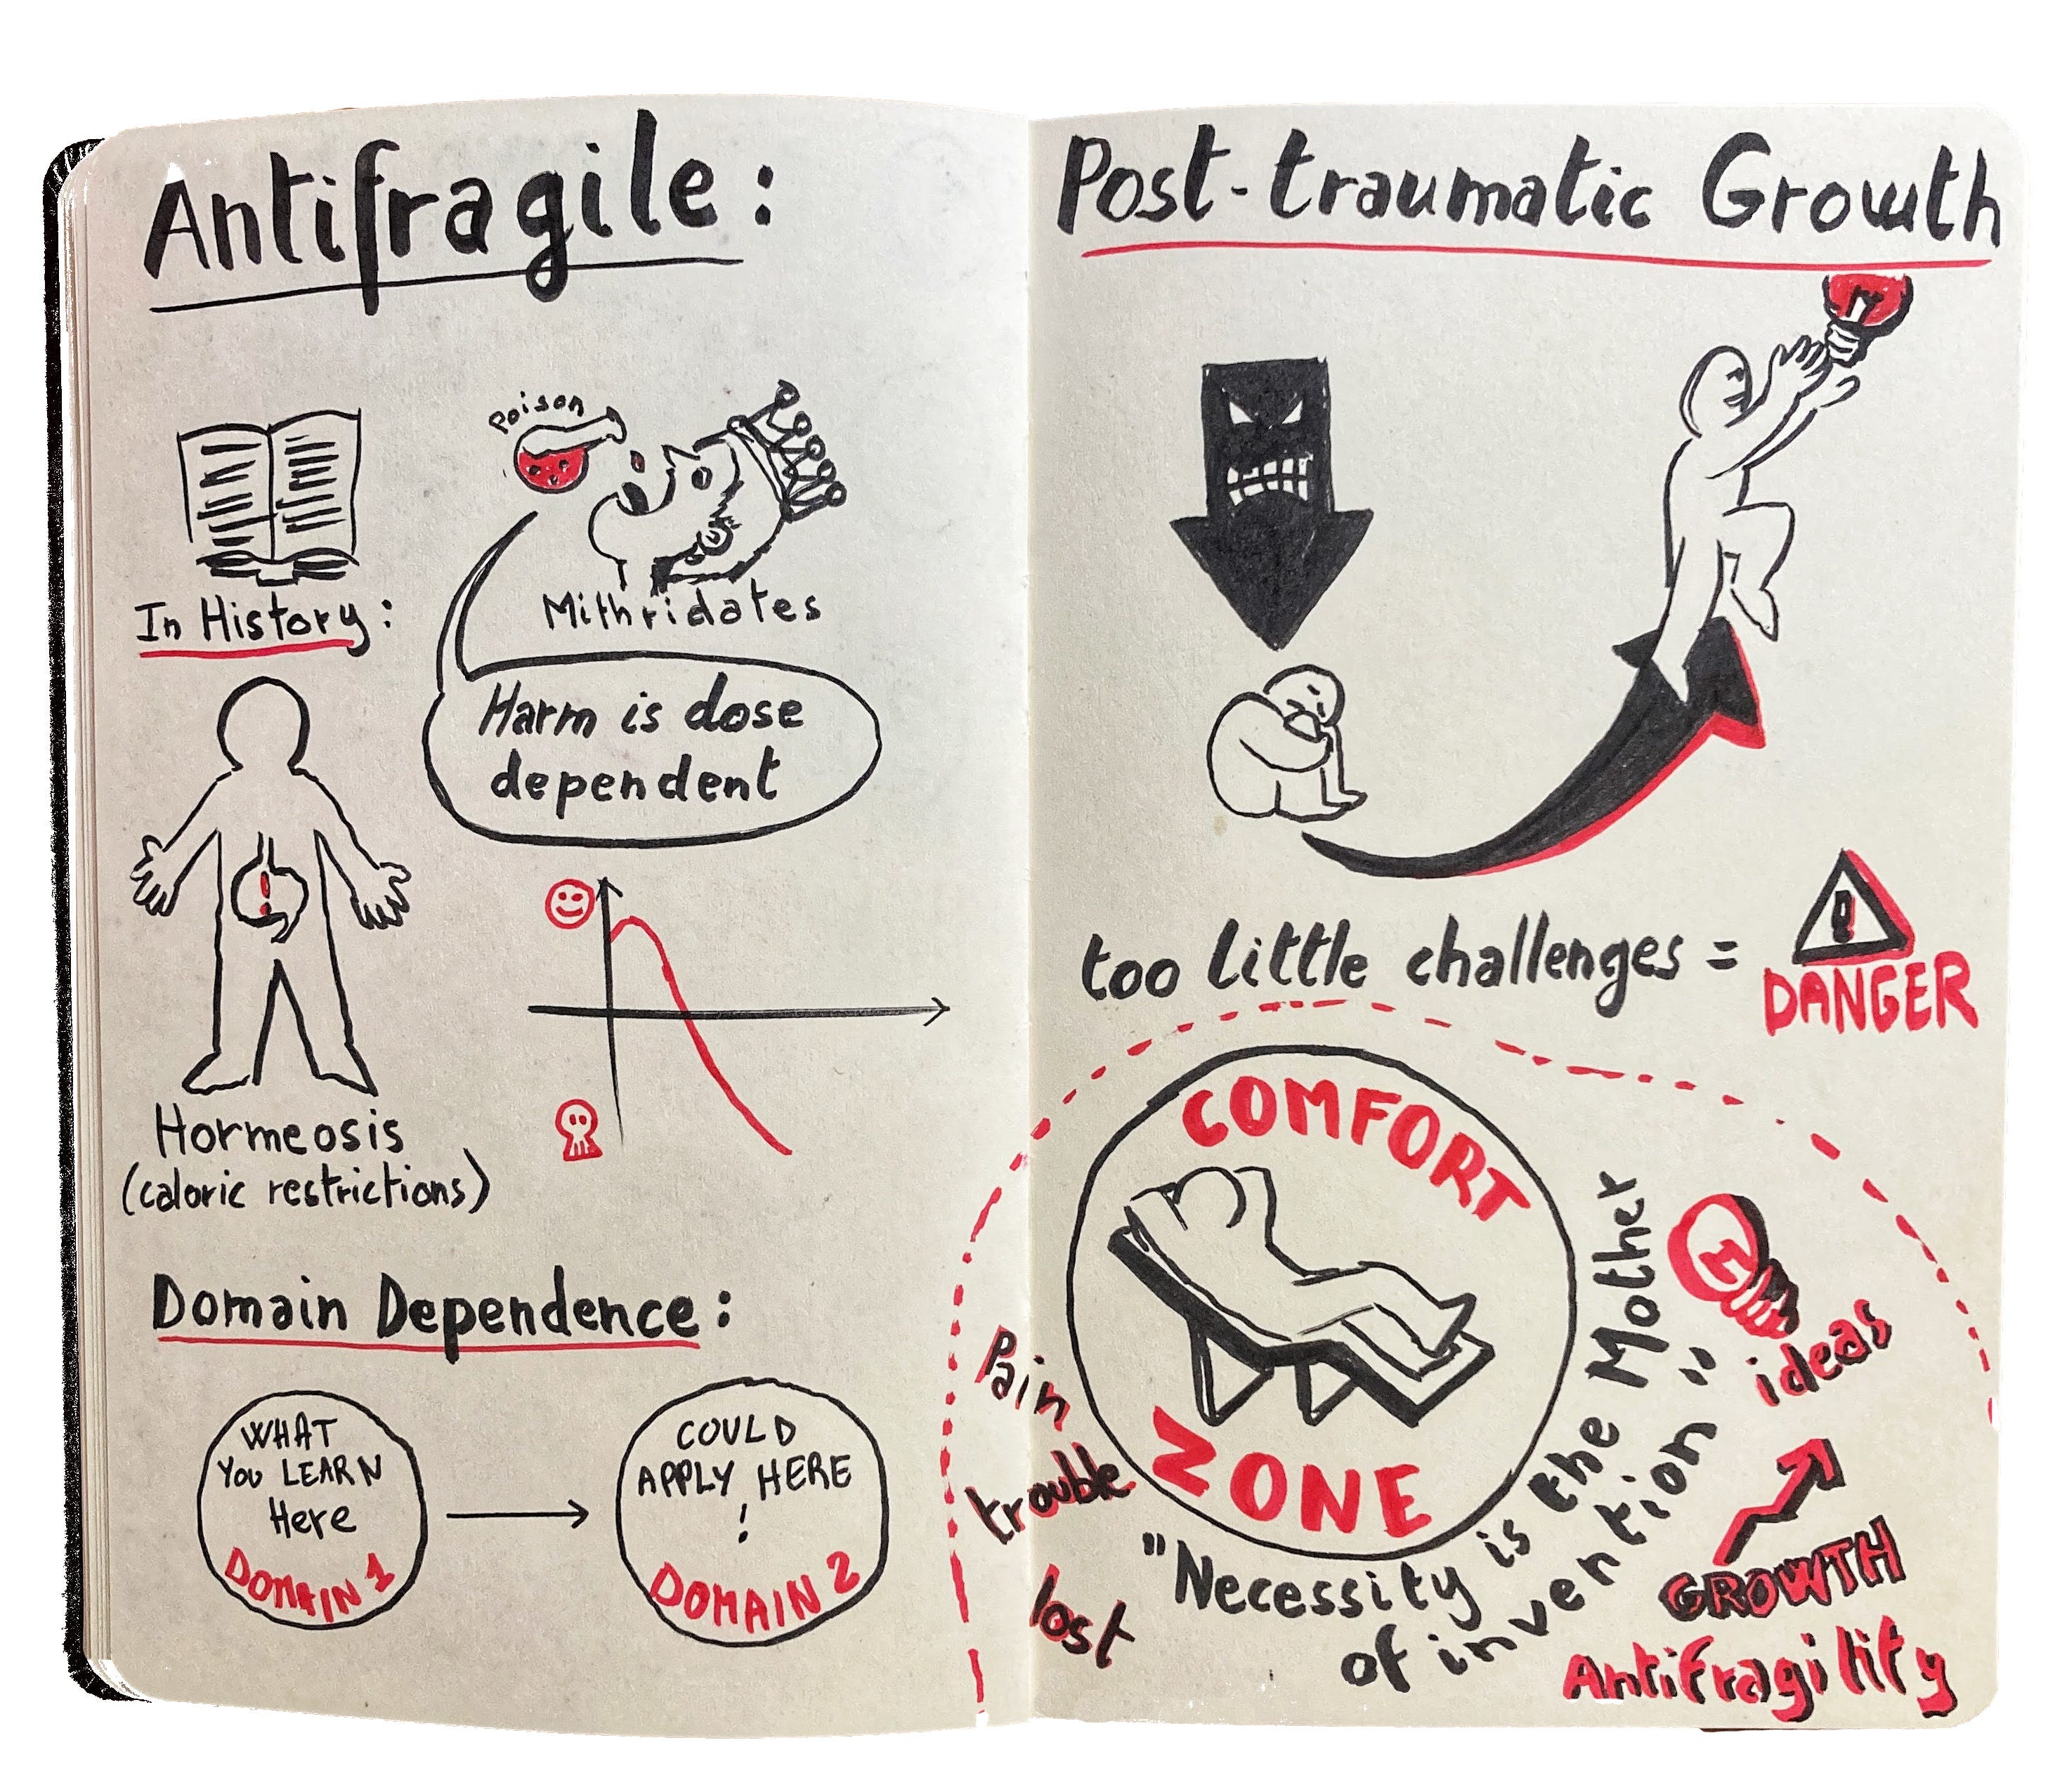 Antifragile:
Poison
Mithridates
In History:
Harm is dose
dependent
Hormeosis
(caloric restrictions)
Domain Dependence:
WHAT
YOU LEARN
Here
DOMAIN 1
COULD
APPLY HERE
!
DOMAIN 2
Post-traumatic Growth
too little challenges =
DANGER
COMFORT
ZONE
Pain
trouble
lost
"Necessity is the Mother
of invention"
ideas
GROWTH
Antifragility